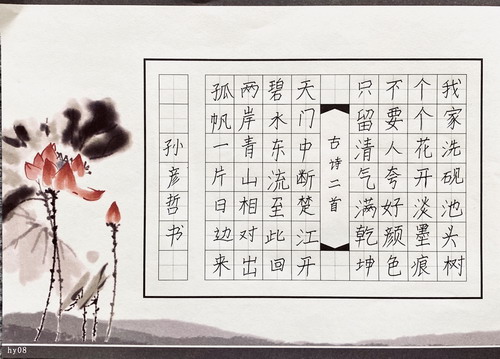 我家洗砚池头树
个个花开淡墨痕
不要人夸好颜色
只留清气满乾坤
古诗二首
天门中断楚江开
碧水东流至此回
两岸青山相对出
孤帆一片日边来
孙彦哲书
hy08